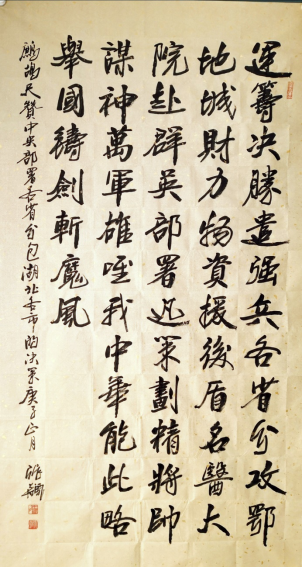 運籌決勝遣强兵各省分攻鄂
地城財力物資援後盾名醫大
院赴群英部署迅策劃精將帥
謀神萬軍雄唯我中華能此略
舉國鑄劍斬魔風
鷓鴣天贊中央部署各省分包湖北各市的決策庚子正月